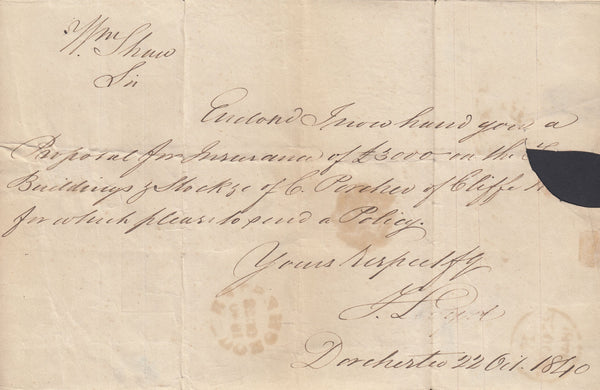 Wm Shaw
Sir
Enclosd I now hand you a
Proposal for Insurance of £3000 on the
Buildings & Stock &c of C. Porcher of Cliffe
for which please to send a Policy.
Yours respectfy
Dorchester 22 Oct. 1840